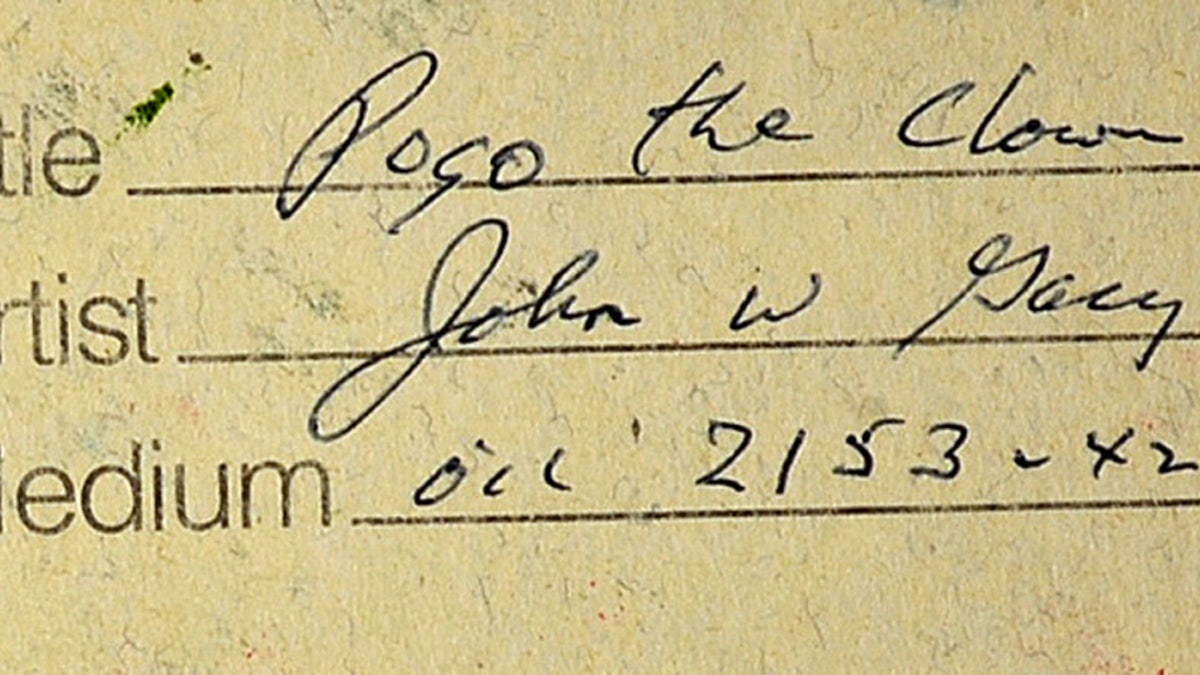 tle Pogo the Clown
rtist John W Gacy
Medium oil 2153-42